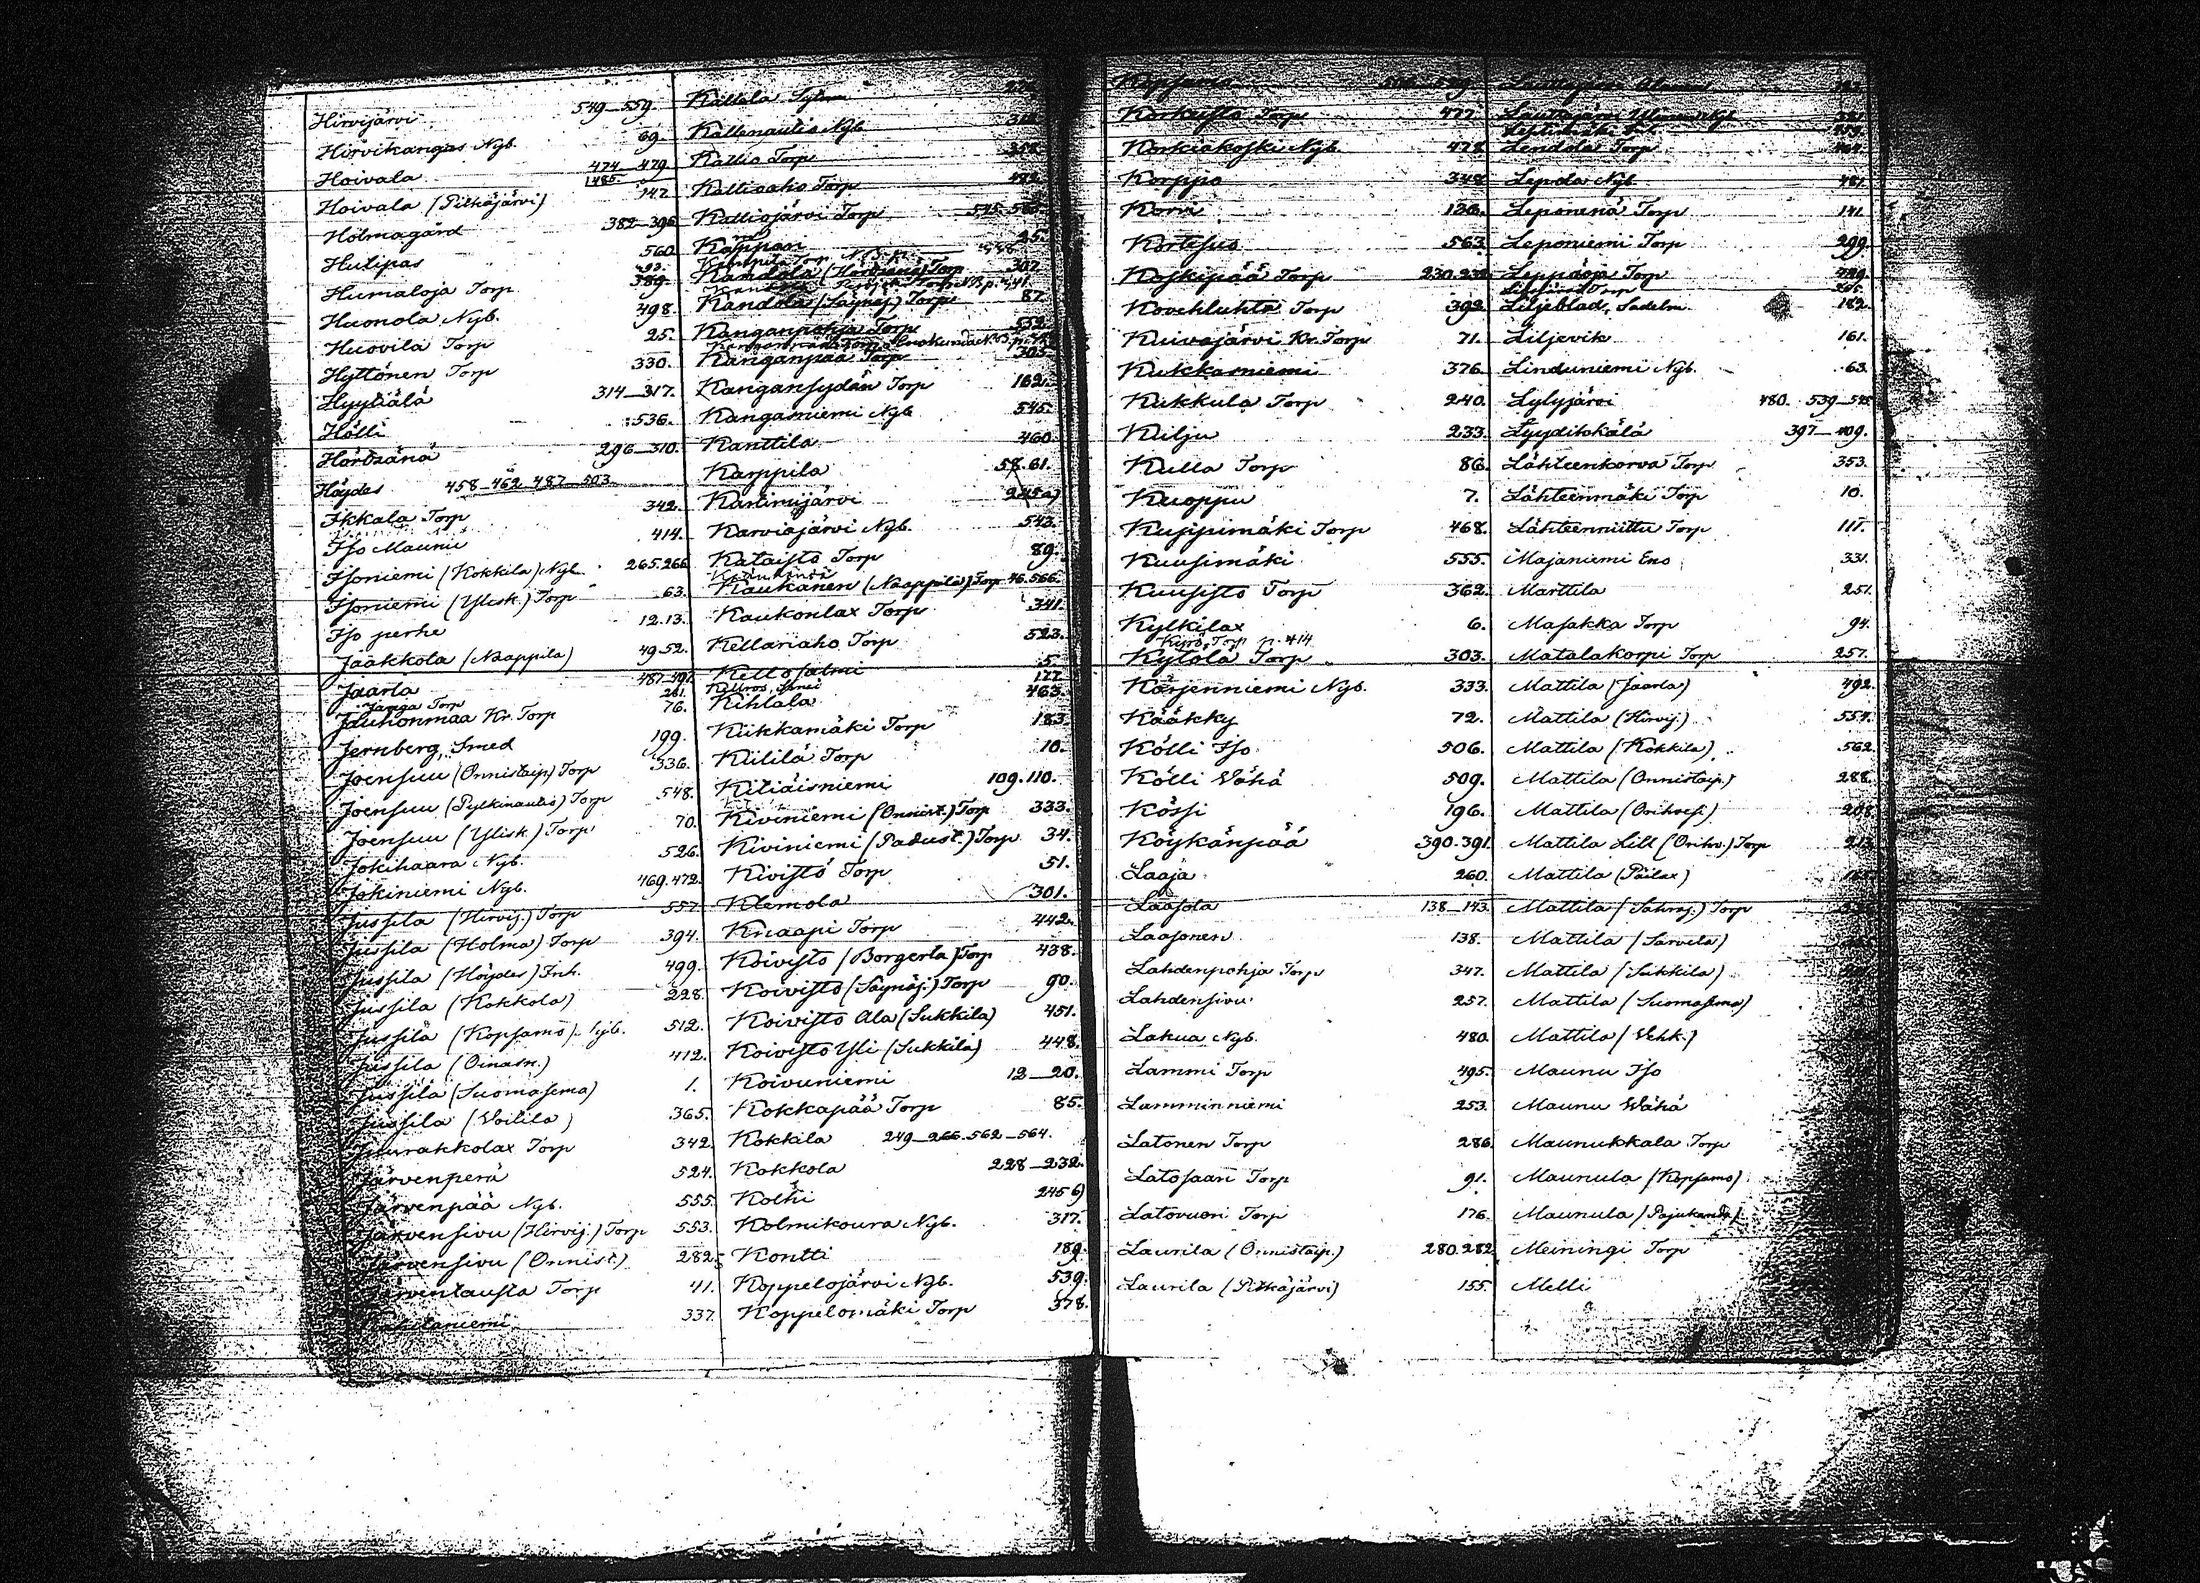 Hirvijärvi 549_559.
Hirvikangas Nyb. 69.
Hoivala 474_479.
1485.
Hoivala (Pitkäjärvi) 142
Holmagård 382_396
Hulipas 560
Humaloja Torp 389.
Huonola Nyb. 498.
Huovila Torp 25.
Hyttönen Torp 330.
Hyytiälä 314_317.
Hölli 536.
Hörtsänä 296_310.
Höydes 458_462 487_503
Ikkala Torp 342.
Iso Maunu 414.
Isoniemi (Kokkila) Nyb. 265.266
Isoniemi (Ylisk.) Torp 63.
Iso perhe 12.13.
Jaakkola (Naappila) 49.52.
Jaarla 487_491.
Jämsä Torp 261.
Jauhonmaa Kr. Torp 76.
Jernberg, Smed 199.
Joensuu (Onnistaip.) Torp 336.
Joensuu (Pylkinautio) Torp 548.
Joensuu (Ylisk.) Torp 70.
Jokihaara Nyb. 526.
Jokiniemi Nyb. 469.472.
Jussila (Hirvij.) Torp 557
Jussila (Holma) Torp 394.
Jussila (Höydes) Inh. 499.
Jussila (Kokkola) 228.
Jussila (Kopsamo) Nyb. 512.
Jussila (Oinasn.) 412.
Jussila (Suomasema) 1.
Jussila (Voitila) 365.
Juurakkolax Torp 342.
Järvenperä 524.
Järvenpää Nyb. 555.
Järvensivu (Hirvij.) Torp 553.
Järvensivu (Onnist.) 282.
Järventausta Torp 41.
337.
Kallela
Kallenautio Nyb.
Kallio Torp 358.
Kallioaho Torp
Kalliojärvi Torp
Kappari 25.
Kandola (Hörtsänä) Torp 302
Kandola (Säynäj.) Torp 87.
Kanganpohja Torp 552.
Kanganpää Torp 303.
Kangansydän Torp 162.
Kangasniemi Nyb 545.
Kanttila 460.
Karppila 58.61.
Karlinijärvi 245 a)
Karviajärvi Nyb. 543.
Kataisto Torp 89.
Kaukanen (Naappila) Torp 46.566.
Kaukonlax Torp 341.
Kellariaho Torp 523.
Kellosalmi 5.
177.
Kihlala 463.
Kiikkamäki Torp 183.
Kiililä Torp 10.
Kiliäisniemi 109.110.
Kiviniemi (Onnist.) Torp 333.
Kiviniemi (Padust.) Torp 34.
Kivistö Torp 51.
Klemola 301.
Knaapi Torp 442.
Koivisto (Borgerla) Torp 438.
Koivisto (Säynäj.) Torp 90.
Koivisto Ala (Sukkila) 451.
Koivisto Yli (Sukkila) 448.
Koivuniemi 12_20.
Kokkapää Torp 85.
Kokkila 249_266.562_564.
Kokkola 228_232.
Kolhi 245 b)
Kolmikoura Nyb. 317.
Kontti 189.
Koppelojärvi Nyb. 539.
Koppelomäki Torp 378.
Kopsamo
Korkeisto Torp 477
Korkiakoski Nyb. 478
Korppo 348
Korvi 136.
Kortesuo 563
Koskipää Torp 230.232
Kovehluhta Torp 392
Kuivajärvi Kr. Torp 71.
Kukkarniemi 376.
Kukkula Torp 240.
Kulju 233.
Kulla Torp 86.
Kuoppu 7.
Kuppimäki Torp 468.
Kuusimäki 555.
Kuusisto Torp 362.
Kylkilax 6.
Kyrö Torp p. 414
Kytölä Torp 303.
Kärjenniemi Nyb. 333.
Kääkky 72.
Kölli Iso 506.
Kölli Wähä 509.
Kössi 196.
Köykänpää 390.391.
Laaja 260.
Laasola 138_143.
Laasonen 138.
Lahdenpohja Torp 347.
Lahdensivu 257.
Lakua Nyb. 480.
Lammi Torp 495.
Lamminniemi 253.
Latonen Torp 286.
Latosaari Torp 91.
Latovuori Torp 176.
Laurila (Onnistaip.) 280.282
Laurila (Pitkäjärvi) 155.
Lendola Torp
Lepola Nyb. 481.
Leponenä Torp 141.
Leponiemi Torp 299.
Leppäoja Torp
Liljeblad, Sadelm. 182.
Liljevik 161.
Linduniemi Nyb. 63.
Lylyjärvi 480. 539_545
Lyydikkälä 397_409.
Lähteenkorva Torp 353.
Lähteenmäki Torp 10.
Lähteenniittu Torp 117.
Majaniemi Eno 331.
Marttila 251.
Masakka Torp 94.
Matalakorpi Torp 257.
Mattila (Jaarla) 492.
Mattila (Hirvij.) 554.
Mattila (Kokkila) 562.
Mattila (Onnistaip.) 288.
Mattila (Orihvesi) 208
Mattila Lill (Orihv.) Torp 213
Mattila (Päilax)
Mattila (Sahraj.) Torp
Mattila (Sarvela)
Mattila (Sukkila)
Mattila (Suomasema)
Mattila (Vehk.)
Maunu Iso
Maunu Wähä
Maunukkala Torp
Maunula (Kopsamo)
Maunula (Pajukanda)
Meiningi Torp
Melli